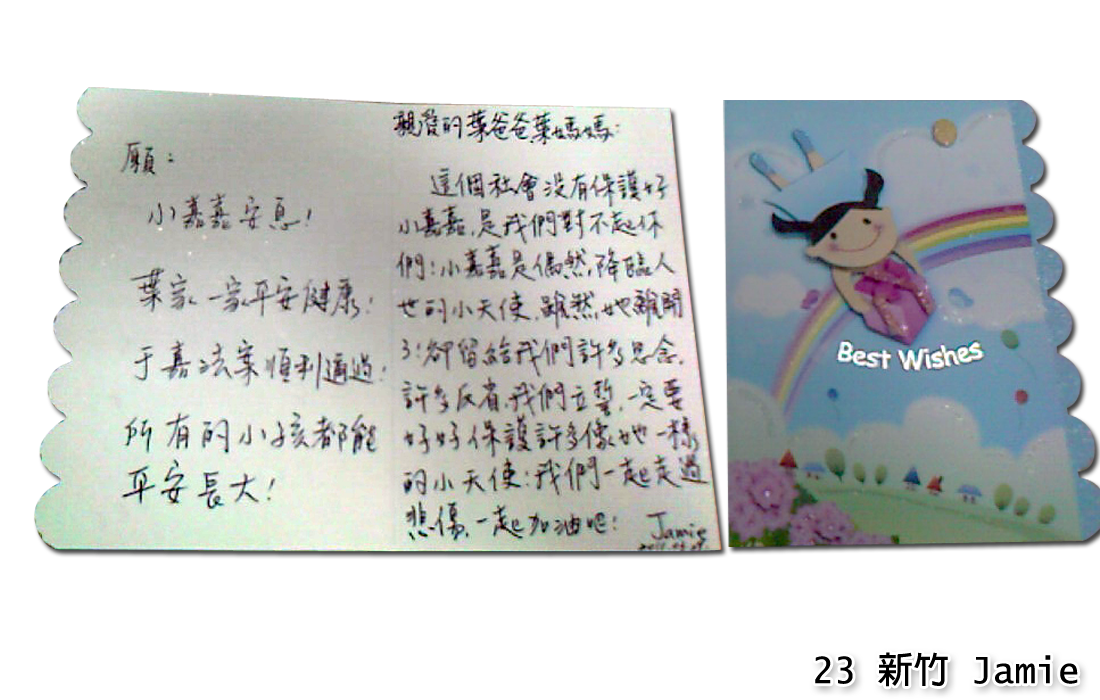 願：
小嘉嘉安息！
葉家一家平安健康！
于嘉法案順利通過！
所有的小孩都能
平安長大！
親愛的葉爸爸葉媽媽：
這個社會沒有保護好
小嘉嘉，是我們對不起你
們！小嘉嘉是偶然降臨人
世的小天使，雖然，她離開
了！卻留給我們許多思念，
許多反省，我們立誓，一定要
好好保護許多像她一樣
的小天使！我們一起走過
悲傷，一起加油吧！
Jamie
Best Wishes
23 新竹 Jamie